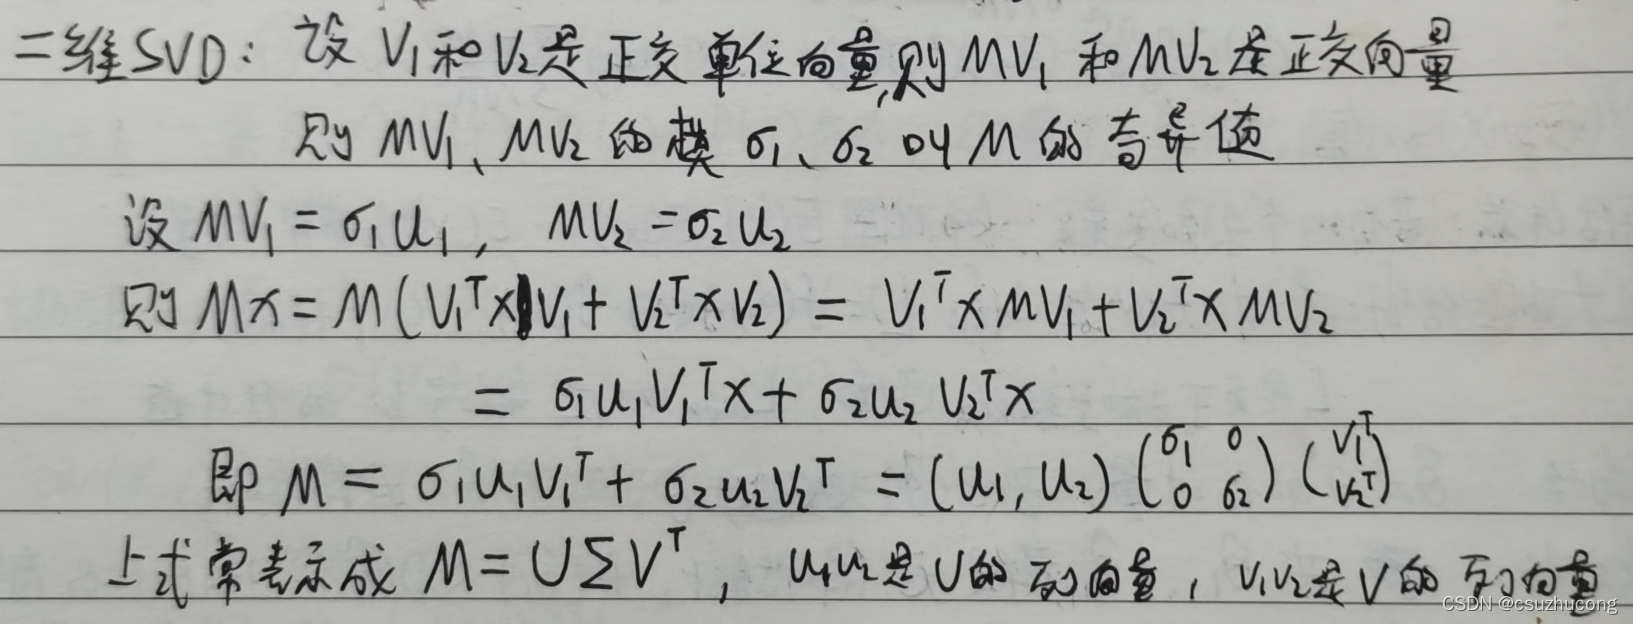 二维SVD: 设 V₁和V₂是正交单位向量,则MV₁ 和MV₂是正交向量
则 MV₁、MV₂ 的模 σ₁、σ₂ 叫 M 的奇异值
设 MV₁ = σ₁u₁, MV₂ = σ₂u₂
则 Mx = M(V₁ᵀx V₁ + V₂ᵀx V₂) = V₁ᵀx MV₁ + V₂ᵀx MV₂
= σ₁u₁V₁ᵀx + σ₂u₂ V₂ᵀx
即 M = σ₁u₁V₁ᵀ + σ₂u₂V₂ᵀ = (u₁, u₂) (σ₁ 0 0 σ₂) (V₁ᵀ V₂ᵀ)
上式常表示成 M = UΣVᵀ, u₁u₂是U的列向量, V₁V₂是V的列向量
CSDN @csuzhucong